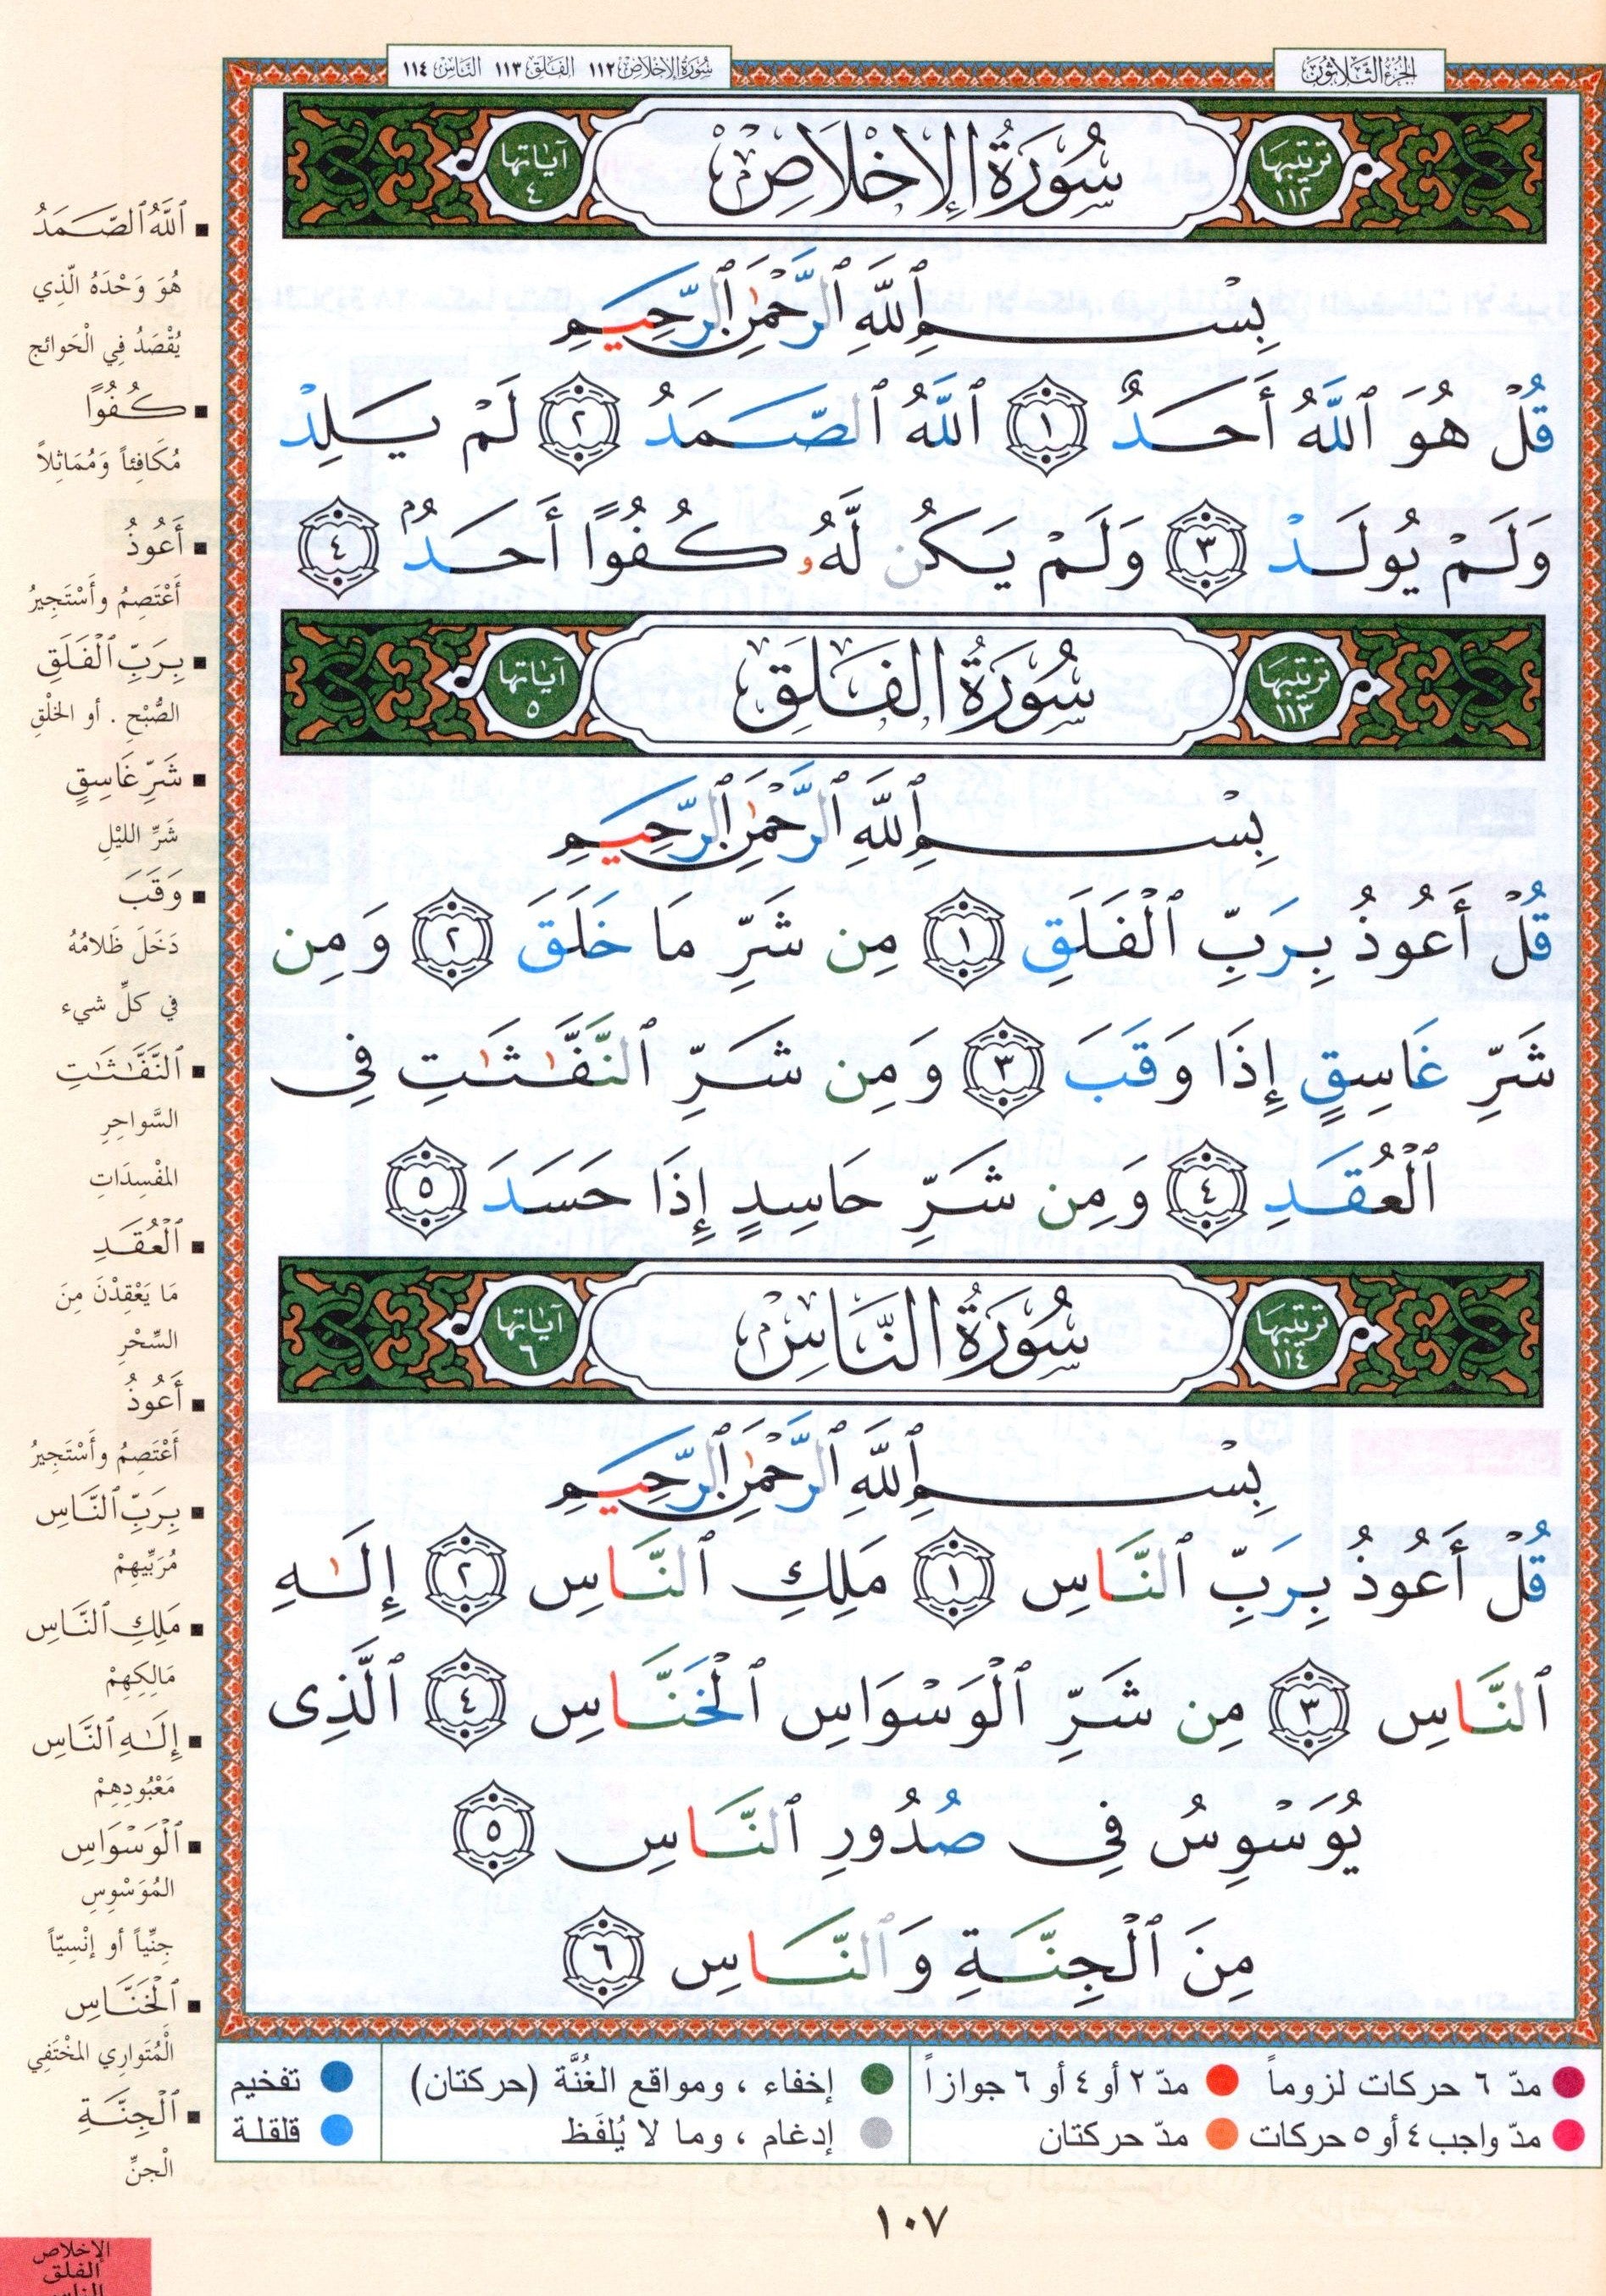 الجزء الثلاثون
سورة الإخلاص ١١٢ الفلق ١١٣ الناس ١١٤
ترتيبها ١١٢
سُورَةُ الإِخْلَاصِ
آياتها ٤
بِسْمِ ٱللَّهِ ٱلرَّحْمَٰنِ ٱلرَّحِيمِ
قُلْ هُوَ ٱللَّهُ أَحَدٌ ١ ٱللَّهُ ٱلصَّمَدُ ٢ لَمْ يَلِدْ
وَلَمْ يُولَدْ ٣ وَلَمْ يَكُن لَّهُۥ كُفُوًا أَحَدٌۢ ٤
ترتيبها ١١٣
سُورَةُ الفَلَقِ
آياتها ٥
بِسْمِ ٱللَّهِ ٱلرَّحْمَٰنِ ٱلرَّحِيمِ
قُلْ أَعُوذُ بِرَبِّ ٱلْفَلَقِ ١ مِن شَرِّ مَا خَلَقَ ٢ وَمِن
شَرِّ غَاسِقٍ إِذَا وَقَبَ ٣ وَمِن شَرِّ ٱلنَّفَّٰثَٰتِ فِى
ٱلْعُقَدِ ٤ وَمِن شَرِّ حَاسِدٍ إِذَا حَسَدَ ٥
ترتيبها ١١٤
سُورَةُ النَّاسِ
آياتها ٦
بِسْمِ ٱللَّهِ ٱلرَّحْمَٰنِ ٱلرَّحِيمِ
قُلْ أَعُوذُ بِرَبِّ ٱلنَّاسِ ١ مَلِكِ ٱلنَّاسِ ٢ إِلَٰهِ
ٱلنَّاسِ ٣ مِن شَرِّ ٱلْوَسْوَاسِ ٱلْخَنَّاسِ ٤ ٱلَّذِى
يُوَسْوِسُ فِى صُدُورِ ٱلنَّاسِ ٥
مِنَ ٱلْجِنَّةِ وَٱلنَّاسِ ٦
ٱللَّهُ ٱلصَّمَدُ
هُوَ وَحْدَهُ الَّذِي
يُقْصَدُ فِي الْحَوائج
كُفُوًا
مُكَافِئاً وَمُمَاثِلاً
أَعُوذُ
أَعْتَصِمُ وأَسْتَجِيرُ
بِرَبِّ ٱلْفَلَقِ
الصُّبْحِ . أو الخَلْقِ
شَرِّ غَاسِقٍ
شَرِّ الليْلِ
وَقَبَ
دَخَلَ ظَلامُهُ
في كلِّ شيء
ٱلنَّفَّٰثَٰتِ
السَّواحِرِ
المفْسِدَاتِ
ٱلْعُقَدِ
مَا يَعْقِدْنَ مِنَ
السِّحْرِ
أَعُوذُ
أَعْتَصِمُ وأَسْتَجِيرُ
بِرَبِّ ٱلنَّاسِ
مُرَبِّيهِمْ
مَلِكِ ٱلنَّاسِ
مَالِكِهِمْ
إِلَٰهِ ٱلنَّاسِ
مَعْبُودِهِمْ
ٱلْوَسْوَاسِ
المُوَسْوِسِ
جِنِّياً أو إنْسِيّاً
ٱلْخَنَّاسِ
الْمُتَوارِي المخْتَفِي
ٱلْجِنَّةِ
الْجنِّ
مدّ ٦ حركات لزوماً
مدّ ٢ أو ٤ أو ٦ جوازاً
إخفاء ، ومواقع الغُنَّة (حركتان)
تفخيم
مدّ واجب ٤ أو ٥ حركات
مدّ حركتان
إدغام ، وما لا يُلفَظ
قلقلة
١٠٧
الإخلاص
الفلق
الناس